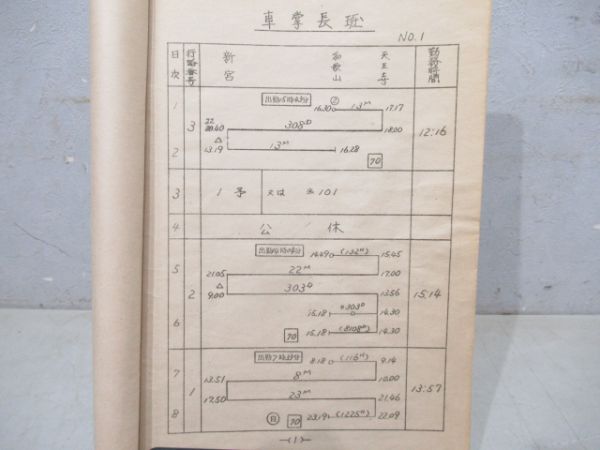 車掌長班
NO.1
日次 行路番号 新宮 和歌山 天王寺 勤務時間
1 3 出勤15時42分 16.30 ② 13M 17.17 12:16
308D 18.00
22
13M
2 △ 13.19 16.28 70
3 1 予 又は 101
4 公休
5 2 14.49 (132H) 15.45 15:14
21.05 22M 17.00
△ 9.00 303D 13.56
15.18 14.30
6 70 15.18 (8108D) 14.30
7 1 8.18 9.14 13:57
13.51 8M 10.00
17.50 23M 21.46
8 70 23.19 (1225H) 22.09
-(1)-